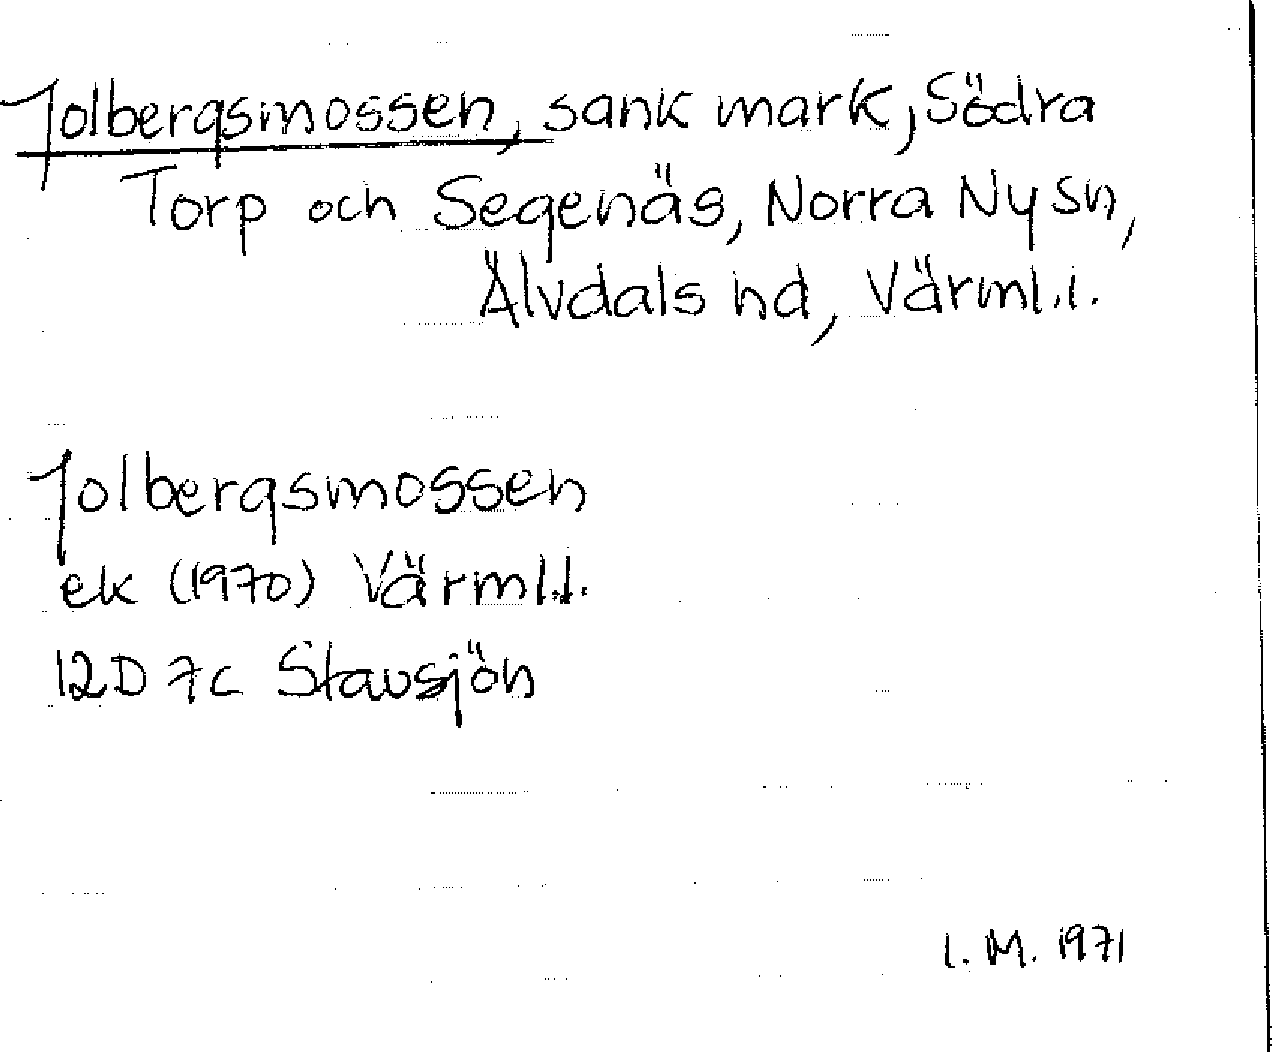 Jolbergsmossen, sank mark, Södra
Torp och Segenäs, Norra Ny sn,
Älvdals hd, Värml.l.
Jolbergsmossen
ek (1970) Värml.l.
12D 7c Stavsjön
I. M. 1971